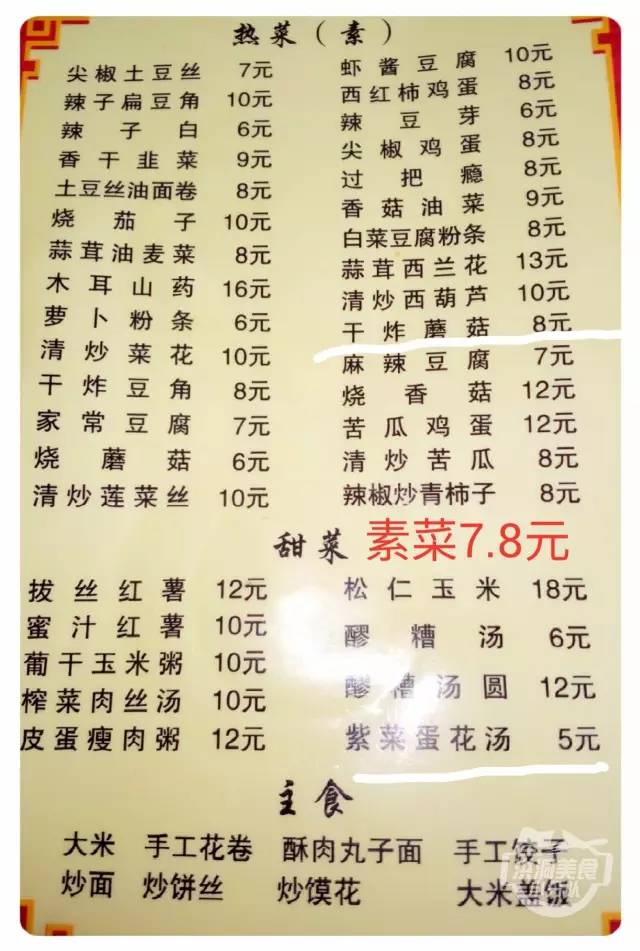 热菜（素）
尖椒土豆丝 7元
辣子扁豆角 10元
辣子白 6元
香干韭菜 9元
土豆丝油面卷 8元
烧茄子 10元
蒜茸油麦菜 8元
木耳山药 16元
萝卜粉条 6元
清炒菜花 10元
干炸豆角 8元
家常豆腐 7元
烧蘑菇 6元
清炒莲菜丝 10元
虾酱豆腐 10元
西红柿鸡蛋 8元
辣豆芽 6元
尖椒鸡蛋 8元
过把瘾 8元
香菇油菜 9元
白菜豆腐粉条 8元
蒜茸西兰花 13元
清炒西葫芦 10元
干炸蘑菇 8元
麻辣豆腐 7元
烧香菇 12元
苦瓜鸡蛋 12元
清炒苦瓜 8元
辣椒炒青柿子 8元
甜菜 素菜7.8元
拔丝红薯 12元
蜜汁红薯 10元
葡干玉米粥 10元
榨菜肉丝汤 10元
皮蛋瘦肉粥 12元
松仁玉米 18元
醪糟汤 6元
醪糟汤圆 12元
紫菜蛋花汤 5元
主食
大米 手工花卷 酥肉丸子面 手工饺子
炒面 炒饼丝 炒馍花 大米盖饭
洪洞美食